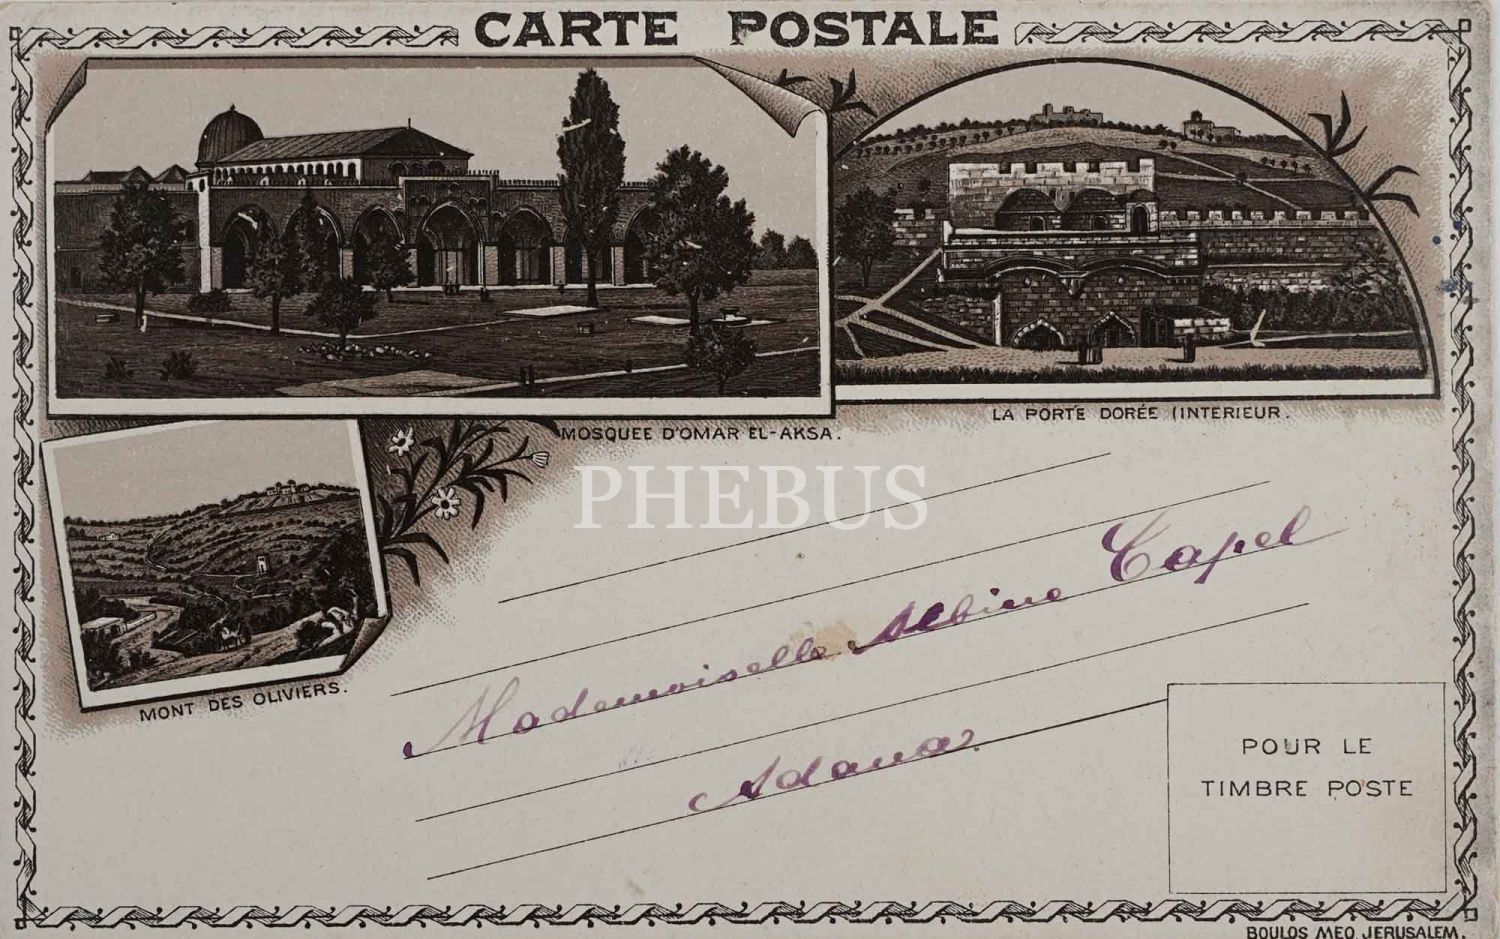 CARTE POSTALE
MOSQUEE D'OMAR EL-AKSA.
LA PORTE DORÉE (INTERIEUR.
MONT DES OLIVIERS.
PHEBUS
Mademoiselle Albine Capel
Adana
POUR LE
TIMBRE POSTE
BOULOS MEO JERUSALEM.